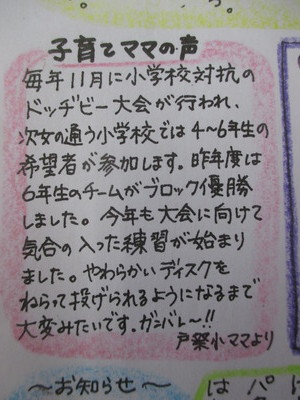 子育てママの声
毎年11月に小学校対抗の
ドッヂビー大会が行われ、
次女の通う小学校では4〜6年生の
希望者が参加します。昨年度は
6年生のチームがブロック優勝
しました。今年も大会に向けて
気合の入った練習が始まり
ました。やわらかいディスクを
ねらって投げられるようになるまで
大変みたいです。ガンバレ〜!!
戸祭小ママより
〜お知らせ〜
は